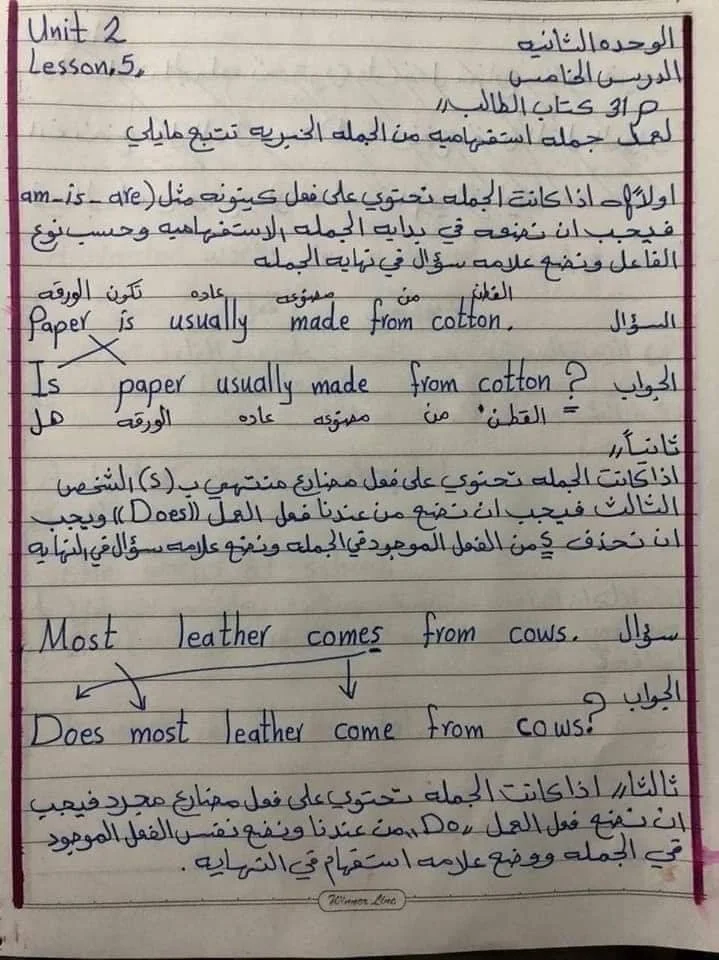 Unit 2
الوحده الثانيه
Lesson.5.
الدرس الخامس
ص 31 كتاب الطالب //
لعمل جمله استفهاميه من الجمله الخبريه نتبع مايلي
اولاً// اذا كانت الجمله تحتوي على فعل كينونه مثل (am_is_are
فيجب ان نضعه في بدايه الجمله الاستفهاميه وحسب نوع
الفاعل ونضع علامه سؤال في نهايه الجمله
القطن من مصنوعه عاده تكون الورقه
السؤال Paper is usually made from cotton.
الجواب Is paper usually made from cotton?
القطن من مصنوعه عاده الورقه هل
ثانياً//
اذا كانت الجمله تحتوي على فعل مضارع منتهي ب (s) الشخص
الثالث فيجب ان نضع من عندنا فعل العمل ((Does)) ويجب
ان نحذف s من الفعل الموجود في الجمله ونضع علامه سؤال في النهايه
سؤال Most leather comes from cows.
الجواب
Does most leather come from cows?
ثالثا// اذا كانت الجمله تحتوي على فعل مضارع مجرد فيجب
ان نضع فعل العمل ,,Do,, من عندنا ونضع نفس الفعل الموجود
في الجمله ووضع علامه استفهام في النهايه.
Winner Line